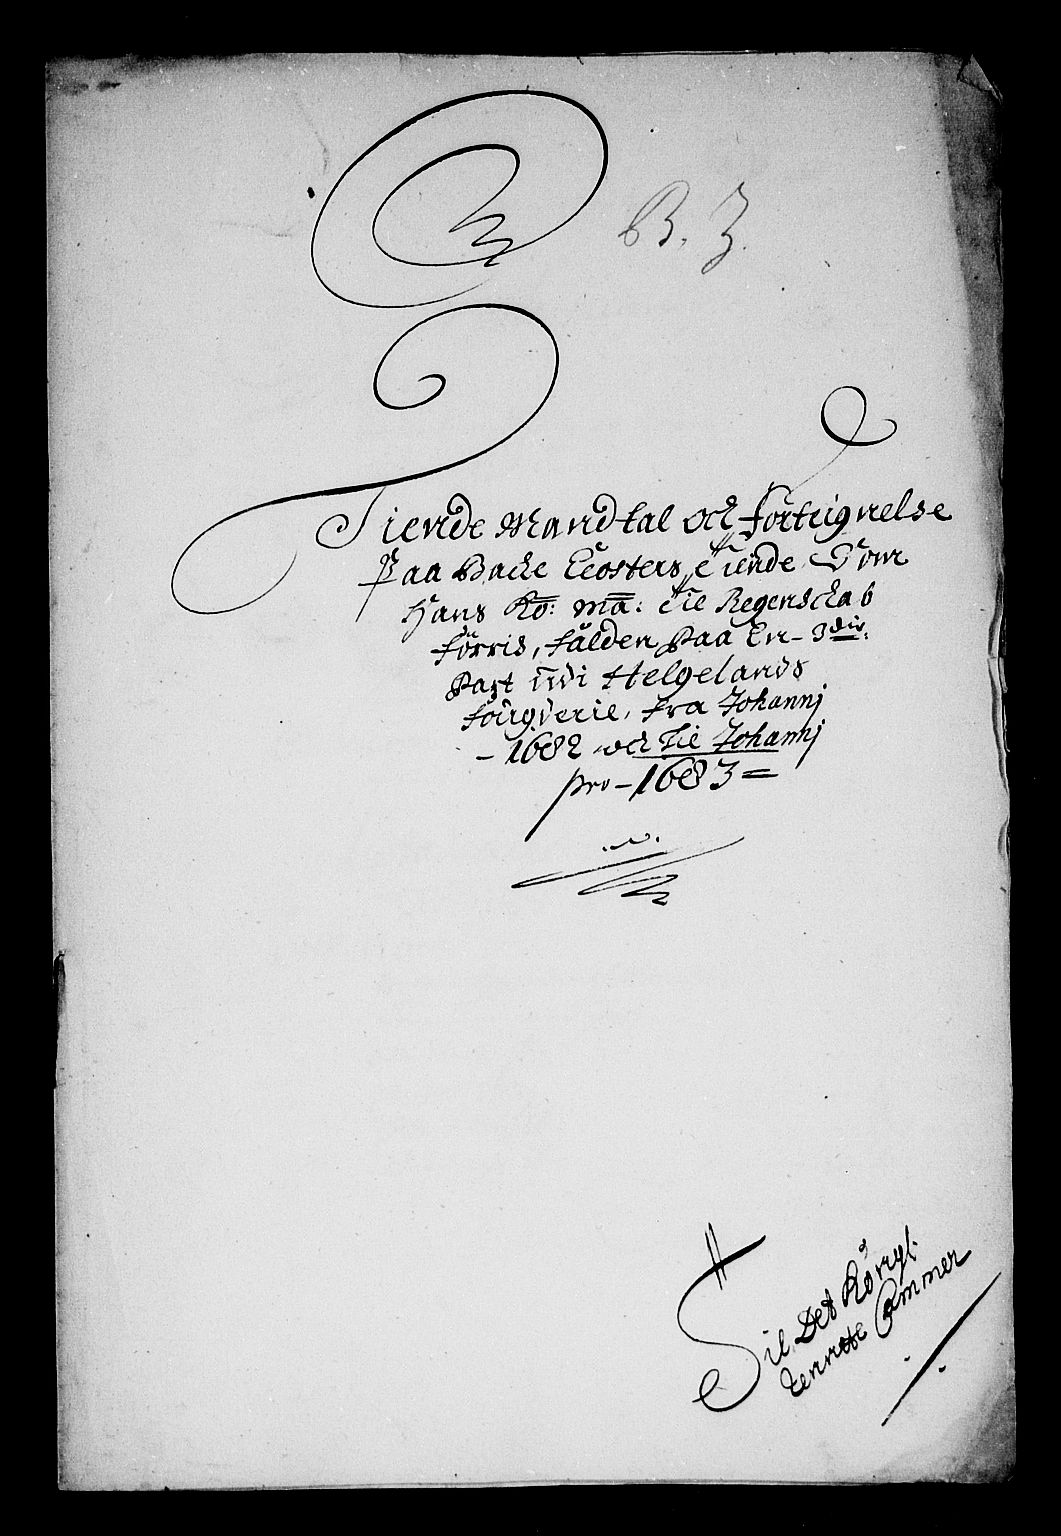 B. 3.
Tiende Mandtal och fortegnelse
Paa Backe Closters Tiende Som
Hans Ko: Ma: til Regenschab
förris, falden paa En - 3die
Part udi Helgelands
fougderie, Fra Johannj
- 1682 och Til Johannj
pro - 1683 =
Til Det Kongl:
Rentte Cammer